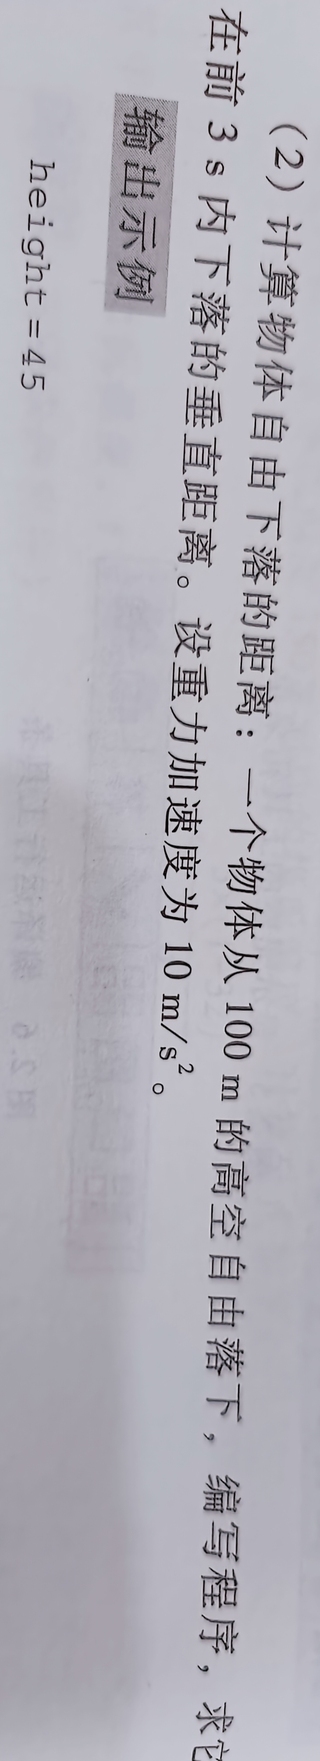 （2）计算物体自由下落的距离：一个物体从 100 m 的高空自由落下，编写程序，求它
在前 3 s 内下落的垂直距离。设重力加速度为 10 m/s²。
输出示例
height=45